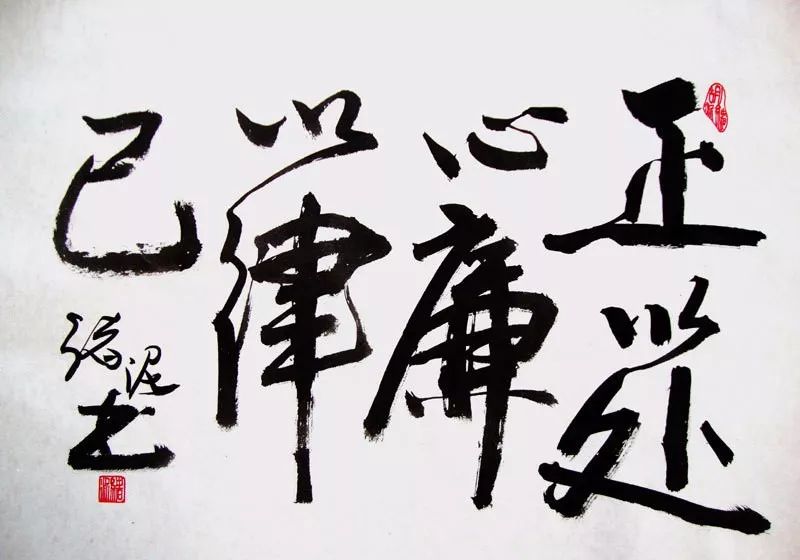 正以处
心廉
以律
己
泥书